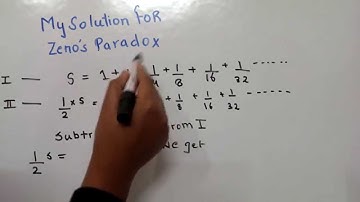 My Solution foR
Zeno's Paradox
I — S = 1 + 1/8 + 1/16 + 1/32 ------
II — 1/2 x S = + 1/8 + 1/16 + 1/32 -----
from I
1/2 S = get